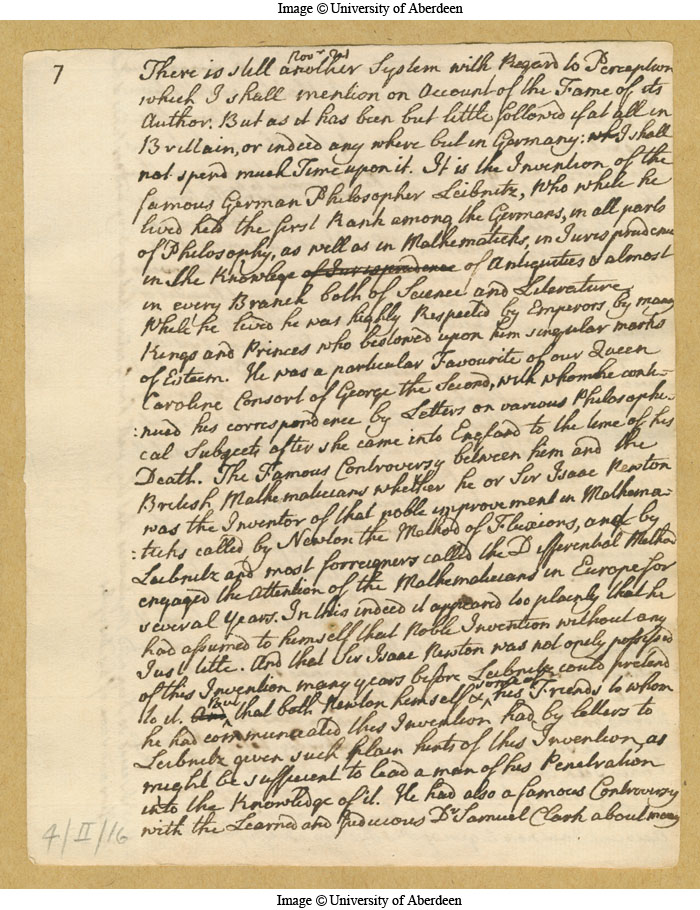 Image © University of Aberdeen
7
Novr 3d
There is still another System with Regard to Perception
which I shall mention on Account of the Fame of its
Author. But as it has been but little followed if at all in
Brittain, or indeed any where but in Germany: wh I shall
not spend much Time upon it. It is the Invention of the
famous German Philosopher Leibnitz, Who while he
lived held the first Rank among the Germans, in all parts
of Philosophy, as well as in Mathematicks, in Jurisprudence
in the Knowlege of Jurisprudence of Antiquities & almost
in every Branch both of Science and Literature.
While he lived he was highly Respected by Emperors by many
Kings and Princes who bestowed upon him singular marks
of Esteem. He was a particular Favourite of our Queen
Caroline Consort of George the Second, with whom he conti-
:nued his correspondence by Letters on various Philosophi-
cal Subjects after she came into England to the time of his
Death. The Famous Controversy between him and the
British Mathematicians whether he or Sir Isaac Newton
was the Inventor of that noble improvement in Mathema-
:ticks called by Newton the Method of Fluxions, and by
Leibnitz and most forreigners called the Differential Method
engaged the Attention of the Mathematicians in Europe for
several Years. In this indeed it appeared too plainly that he
had assumed to himself that Noble Invention without any
Just title. And that Sir Isaac Newton was not onely possessed
of this Invention many years before Leibnitz could pretend
to it. And But that both Newton himself & some of his Friends to whom
he had communicated this Invention had by letters to
Leibnitz given such plain hints of this Invention, as
might be sufficient to lead a man of his Penetration
into the Knowledge of it. He had also a famous Controversy
with the Learned and judicious Dr Samuel Clark about many
4/II/16
Image © University of Aberdeen